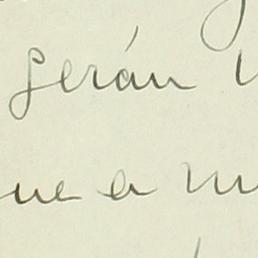 serán
ue a m